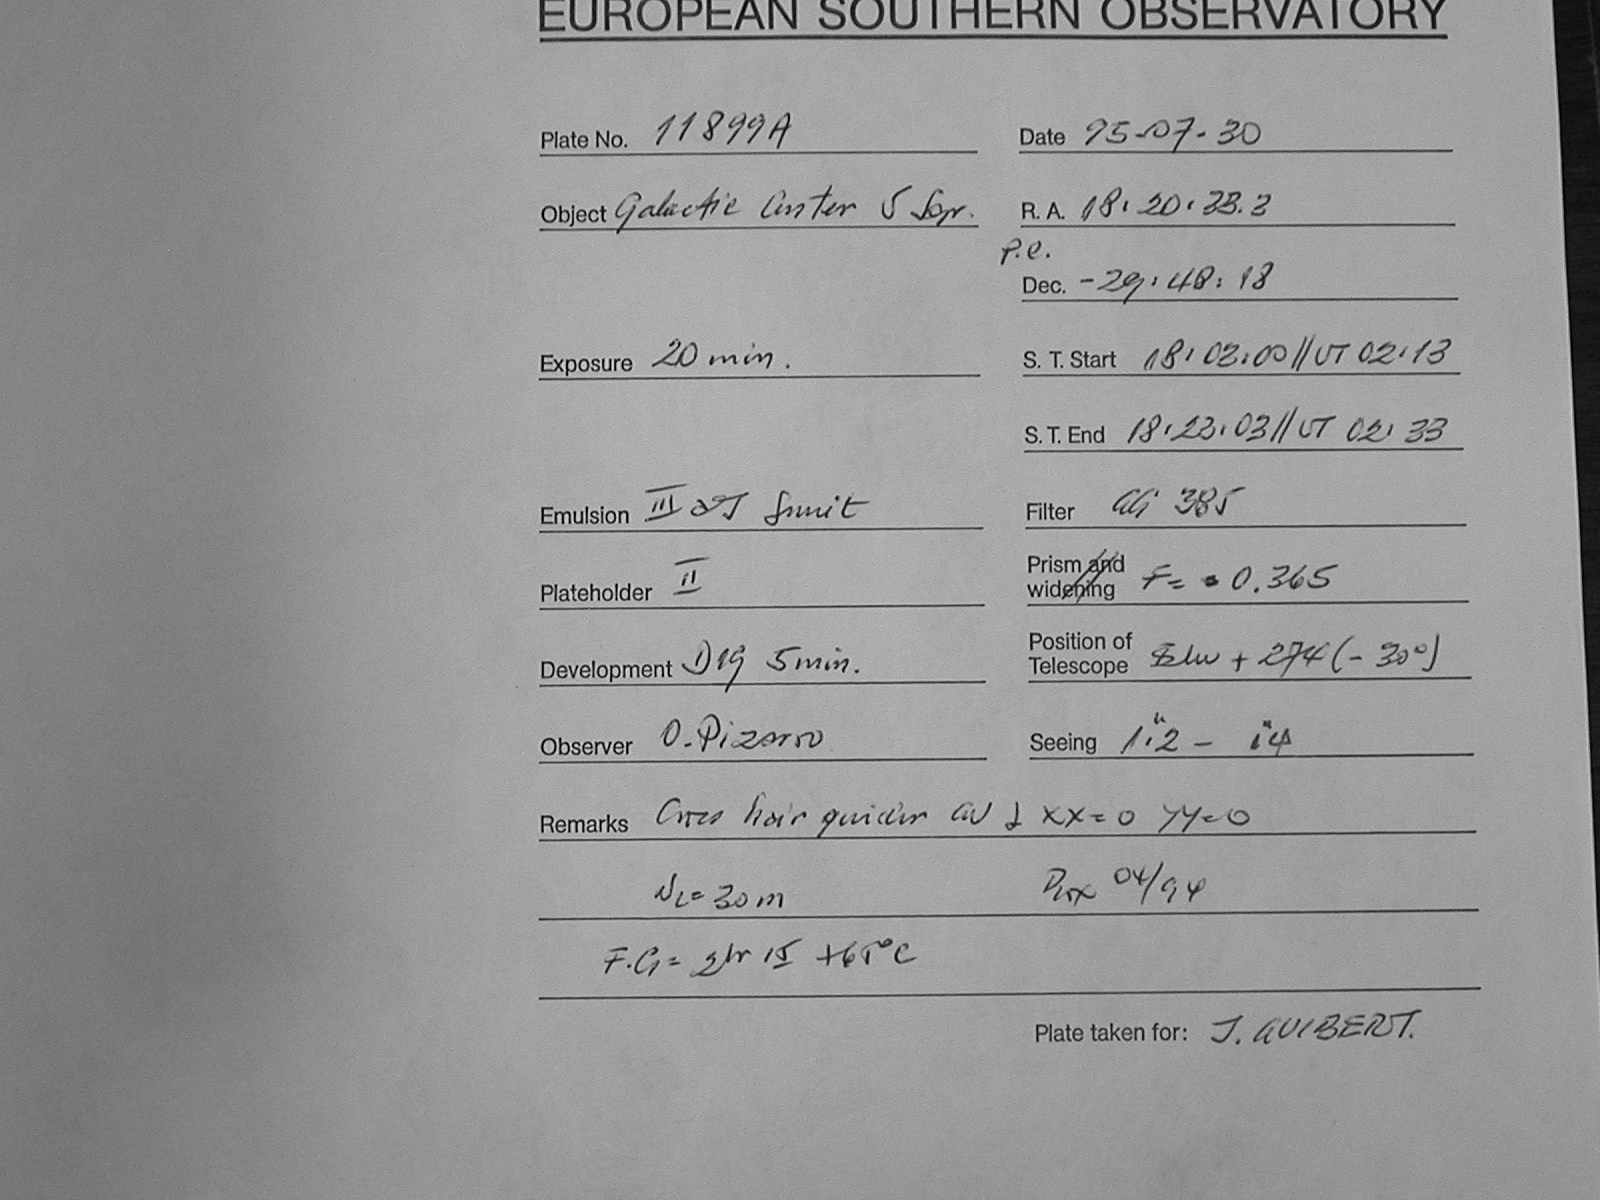 EUROPEAN SOUTHERN OBSERVATORY
Plate No. 11899A
Date 95-07-30
Object Galactic Center 5
R. A. 18:20:33.3
p.e.
Dec. -29:48:18
Exposure 20 min.
S. T. Start 18:03:00 // UT 02:13
S. T. End 18:23:03 // UT 02:33
Emulsion III aJ
Filter GG 385
Plateholder II
Prism and widening F= 0.365
Development D19 5 min.
Position of Telescope + 274 (-30°)
Observer O. Pizarro
Seeing 1."2 - "4
Remarks Cross hair XX=0 YY=0
= 30m 04/94
F.G = 2hr 15 +65°C
Plate taken for: J. GUIBERT.